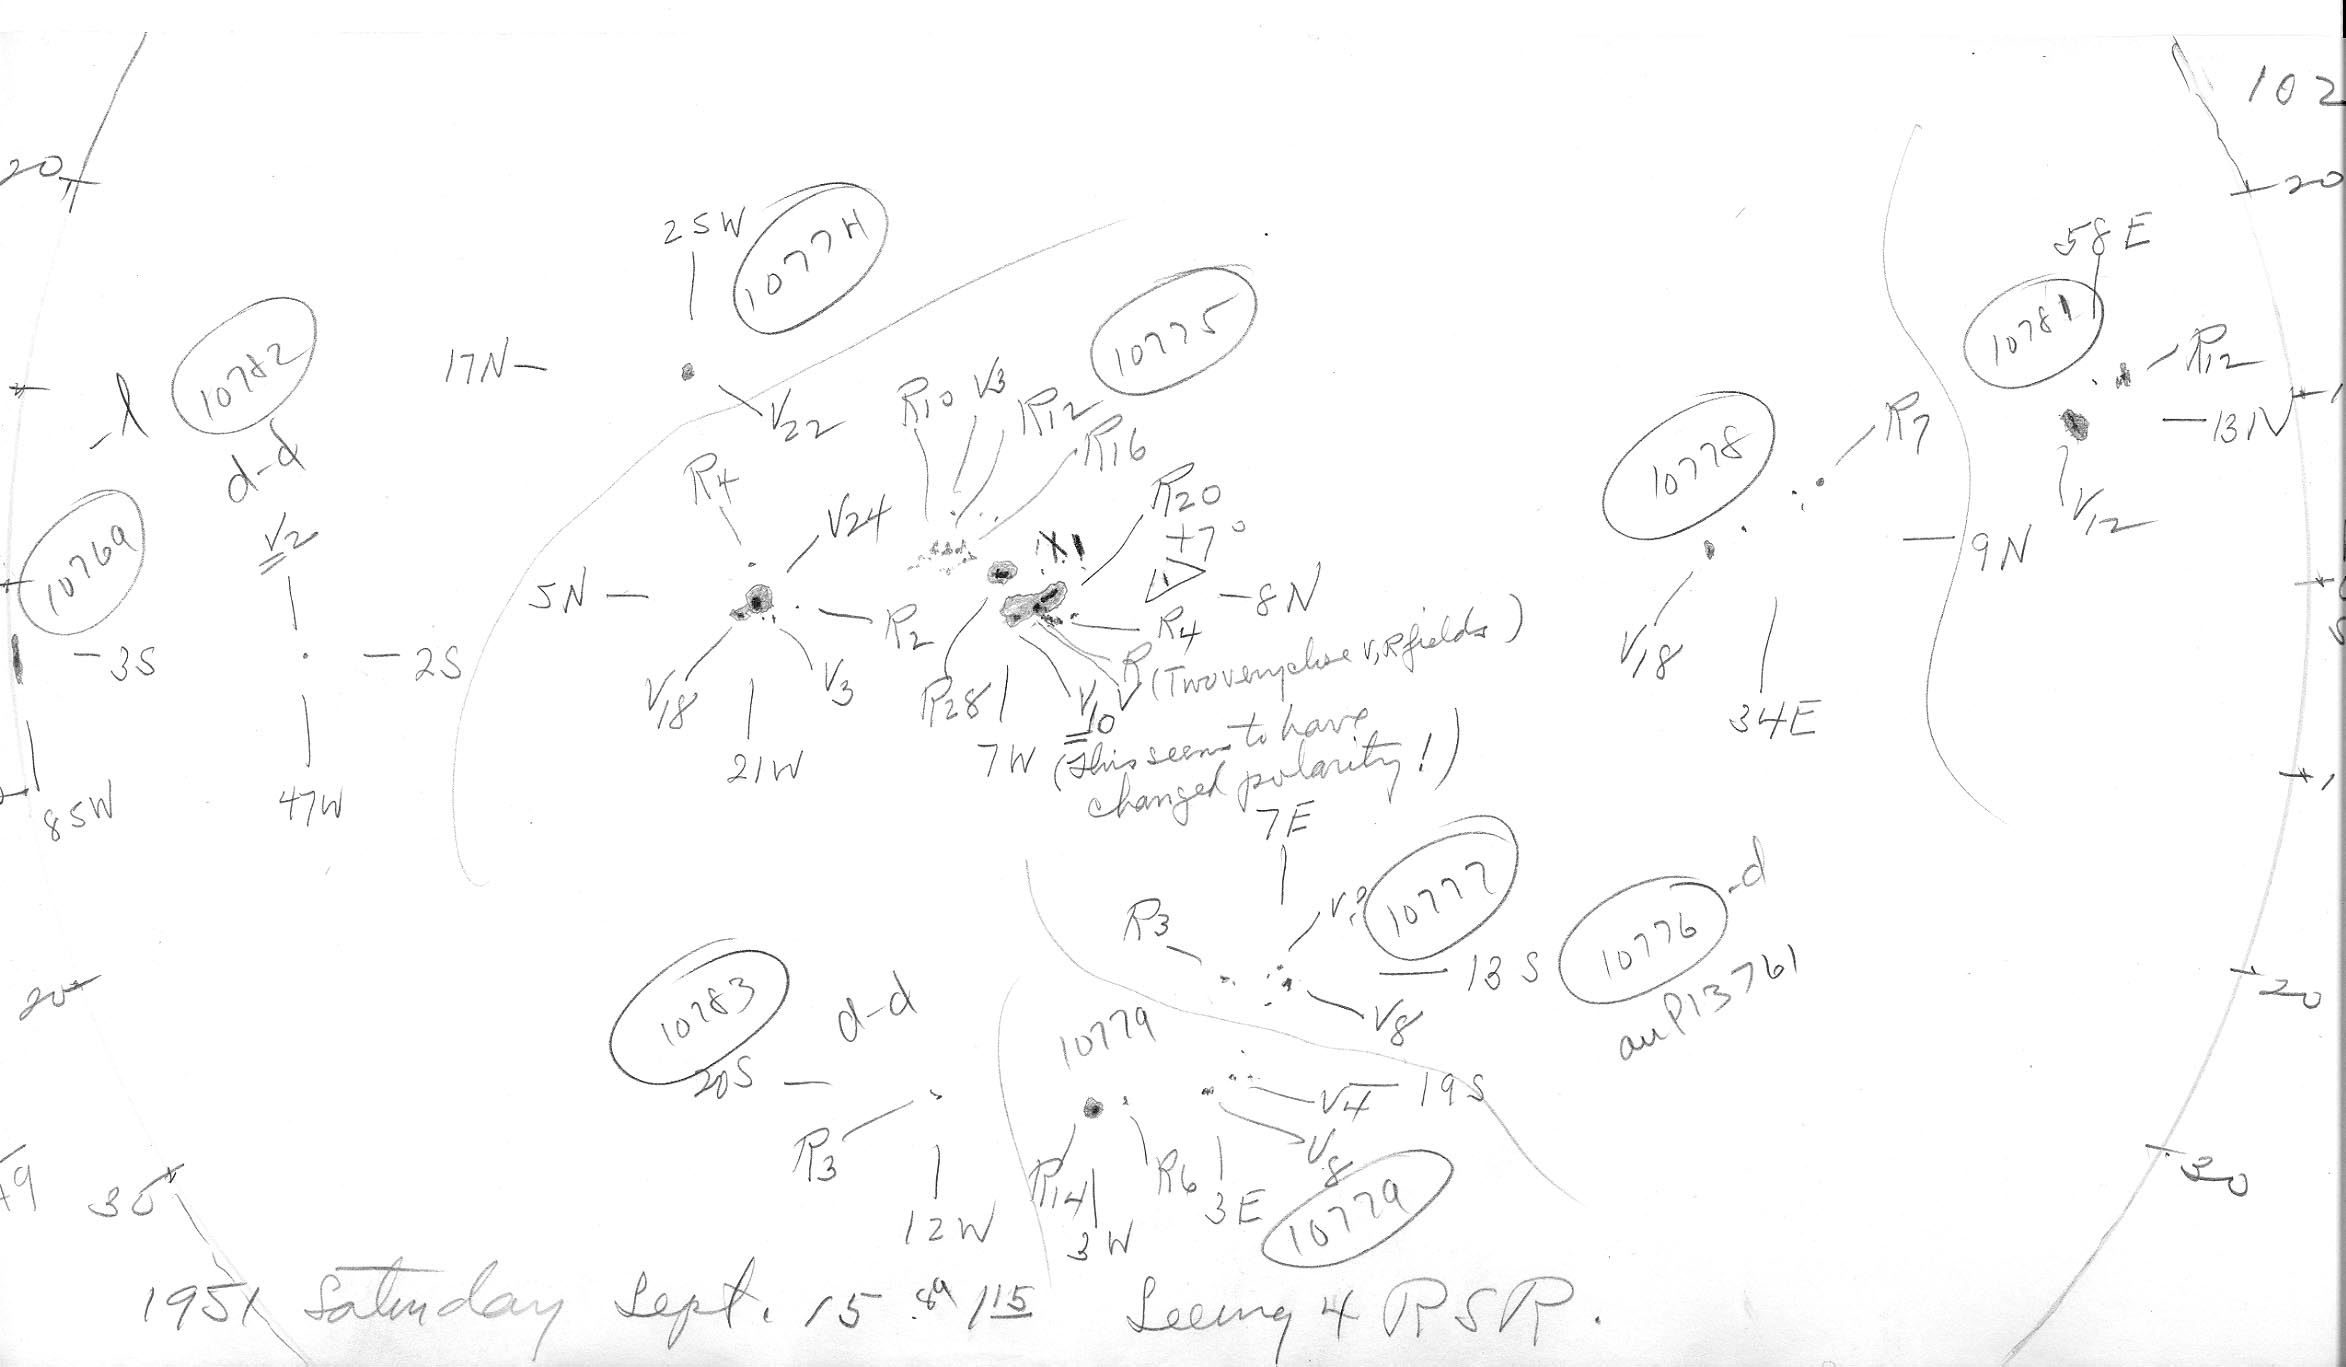 102
20
20
25W
1077H
58E
10782
-l
17N-
10775
10781
R12
V22
R10 V3
R12
R16
-13N
d-d
R4
V24
R20
+7°
R7
10778
V12
10769
V2
5N-
-8N
-9N
R2
R4
R
V
(Two very close V, R fields)
-3S
-2S
V18
V3
R28
V10
V18
34E
21W
7W
(This seems to have
changed polarity!)
85W
47W
7E
R3
10777
-13S
10776
-d
V8
au P13761
20
20
10783
d-d
10779
20S-
V4
-19S
R3
R14
R6
V8
30
30
12W
3W
3E
10779
1951 Saturday Sept. 15 .89 115 Seeing 4 RSR.